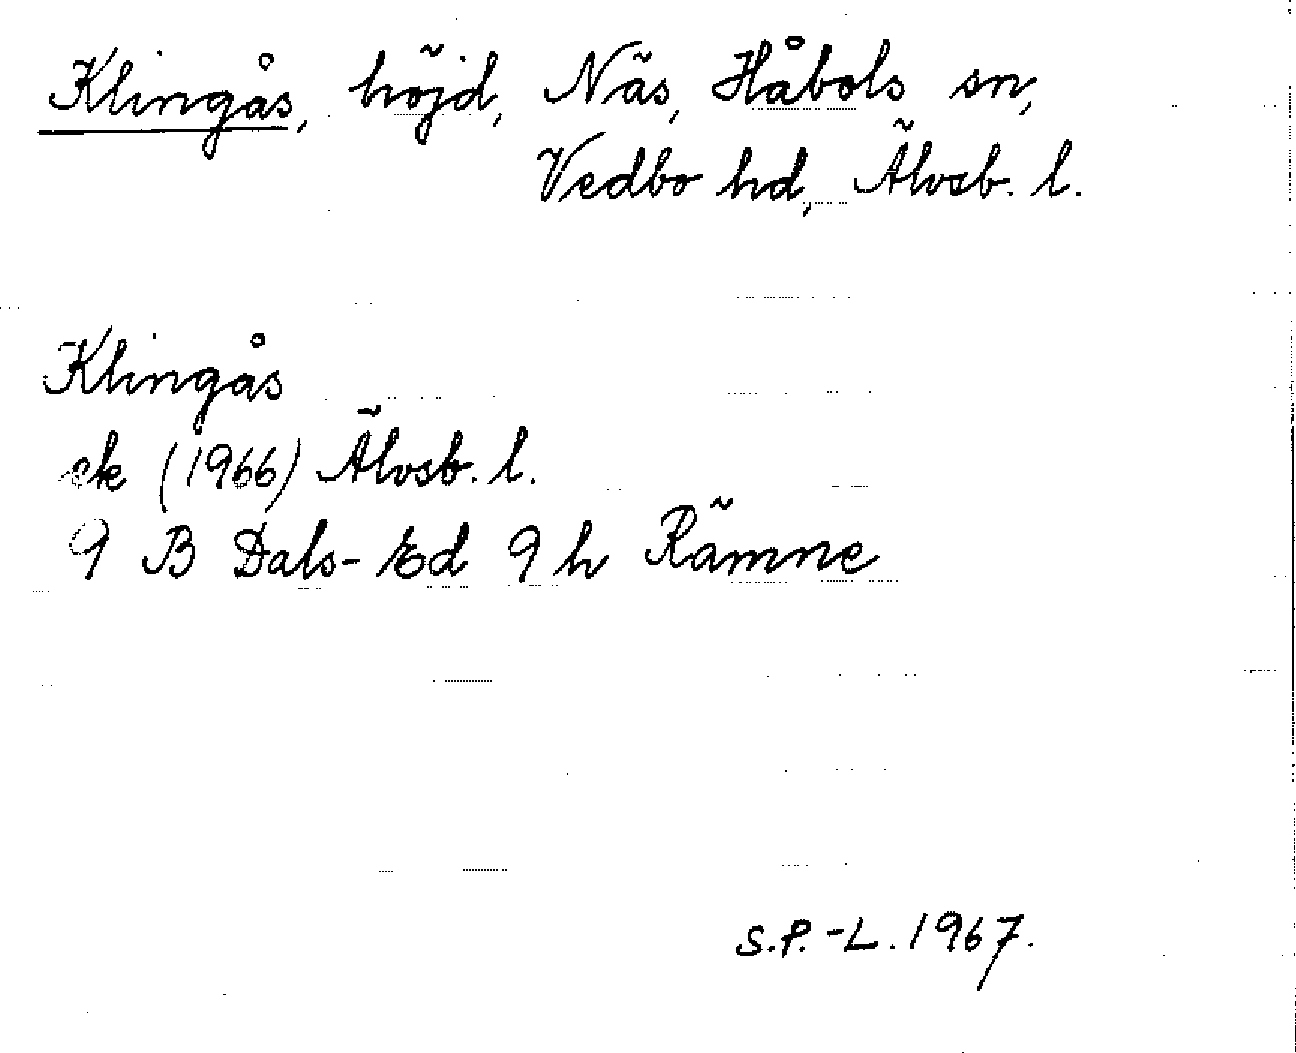 Klingås, höjd, Näs, Håbols sn,
Vedbo hd, Älvsb. l.
Klingås
ek (1966) Älvsb. l.
9 B Dals-Ed 9 h Rämne
S.P.-L. 1967.